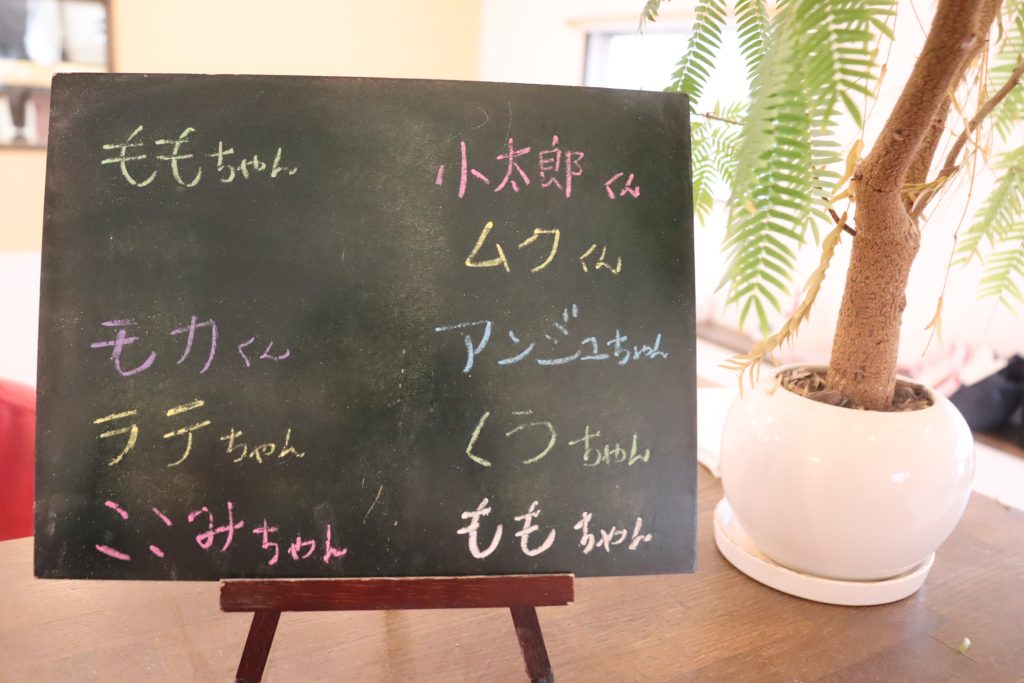 ももちゃん
モカくん
ラテちゃん
ここみちゃん
小太郎くん
ムクくん
アンジュちゃん
くうちゃん
ももちゃん